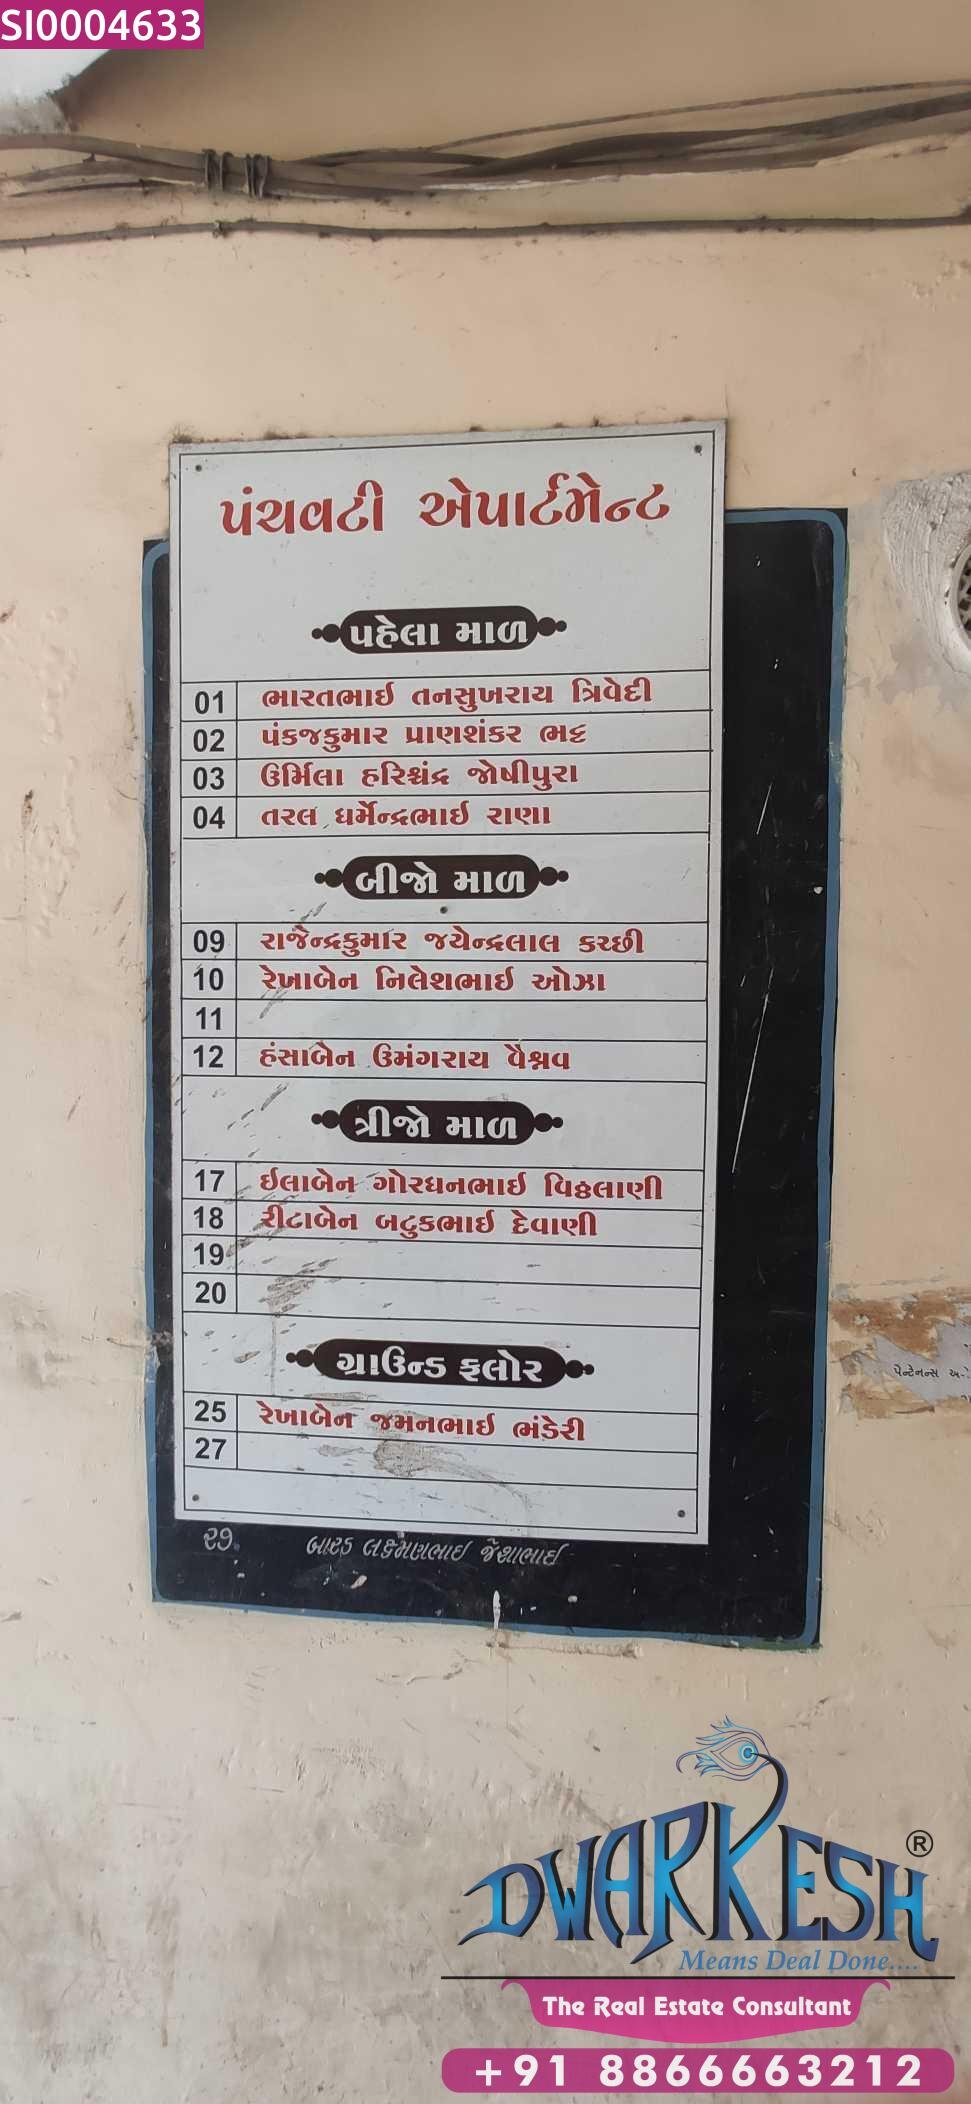 SI0004633
પંચવટી એપાર્ટમેન્ટ
પહેલા માળ
01 ભારતભાઈ તનસુખરાય ત્રિવેદી
02 પંકજકુમાર પ્રાણશંકર ભટ્ટ
03 ઉર્મિલા હરિશ્ચંદ્ર જોષીપુરા
04 તરલ ધર્મેન્દ્રભાઈ રાણા
બીજો માળ
09 રાજેન્દ્રકુમાર જયેન્દ્રલાલ કચ્છી
10 રેખાબેન નિલેશભાઈ ઓઝા
11
12 હંસાબેન ઉમંગરાય વૈશ્નવ
ત્રીજો માળ
17 ઈલાબેન ગોરધનભાઈ વિઠ્ઠલાણી
18 રીટાબેન બટુકભાઈ દેવાણી
19
20
ગ્રાઉન્ડ ફલોર
25 રેખાબેન જમનભાઈ ભંડેરી
27
૨૭. બારડ લક્ષ્મણભાઈ જેશાભાઈ
DWARKESH®
Means Deal Done....
The Real Estate Consultant
+91 8866663212